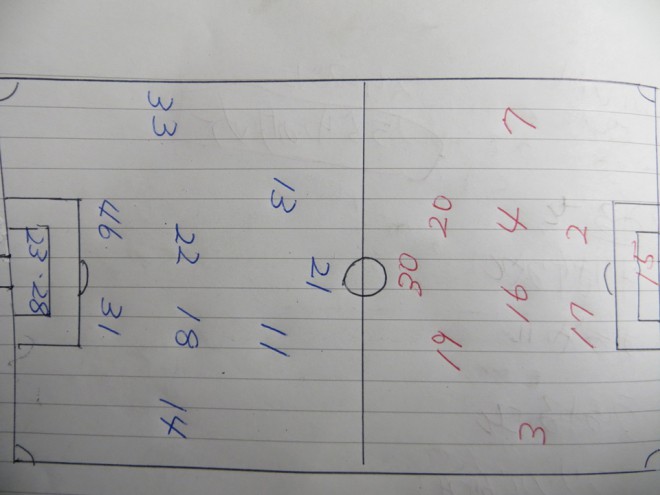 15
2 17
7 4 16 3
20 19
21
13 11
33 22 18 14
46 31
23·28